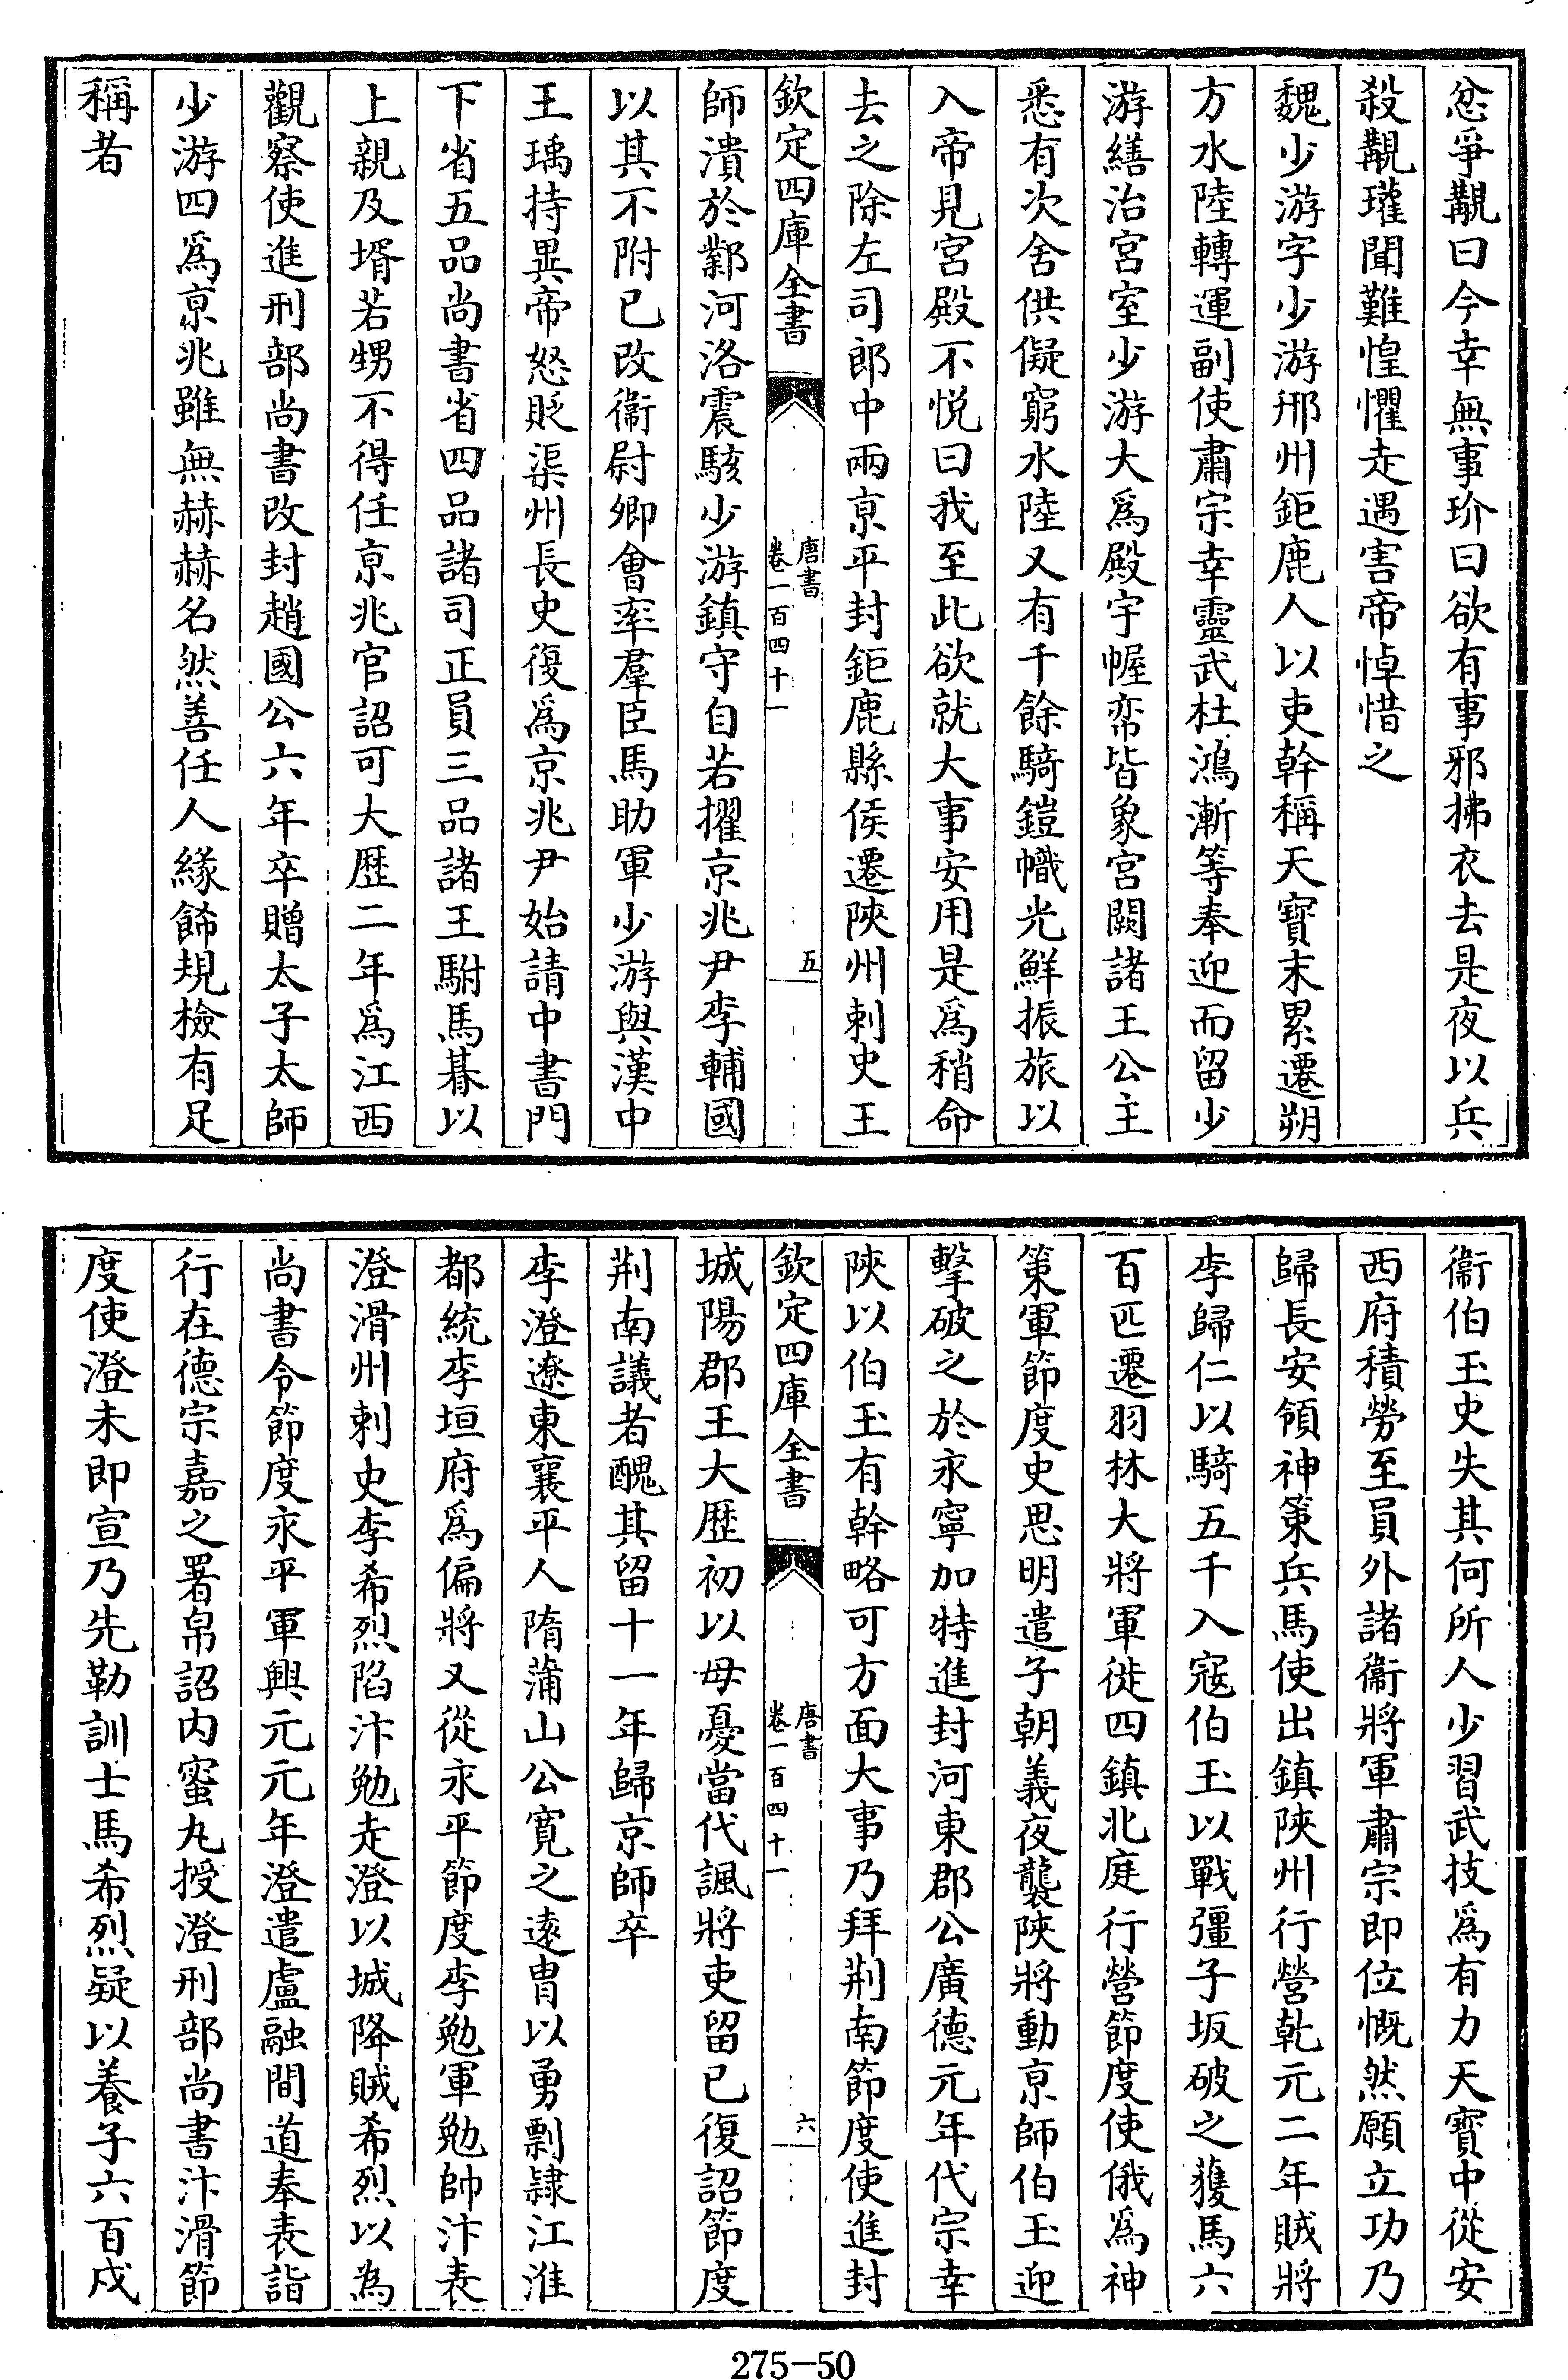 忿爭覯曰今幸無事玠曰欲有事邪拂衣去是夜以兵
殺覯瓘聞難惶懼走遇害帝悼惜之
魏少游字少游邢州鉅鹿人以吏幹稱天寶末累遷朔
方水陸轉運副使肅宗幸靈武杜鴻漸等奉迎而留少
游繕治宮室少游大爲殿宇幄帟皆象宮闕諸王公主
悉有次舍供儗窮水陸又有千餘騎鎧幟光鮮振旅以
入帝見宮殿不悦曰我至此欲就大事安用是爲稍命
去之除左司郎中兩京平封鉅鹿縣侯遷陜州刺史王
欽定四庫全書
唐書
卷一百四十一
五
師潰於鄴河洛震駭少游鎮守自若擢京兆尹李輔國
以其不附已改衞尉卿會率羣臣馬助軍少游與漢中
王瑀持異帝怒貶渠州長史復爲京兆尹始請中書門
下省五品尚書省四品諸司正員三品諸王駙馬朞以
上親及壻若甥不得任京兆官詔可大歴二年爲江西
觀察使進刑部尚書改封趙國公六年卒贈太子太師
少游四爲京兆雖無赫赫名然善任人緣飾規檢有足
稱者
衞伯玉史失其何所人少習武技爲有力天寶中從安
西府積勞至員外諸衞將軍肅宗即位慨然願立功乃
歸長安領神策兵馬使出鎮陜州行營乾元二年賊將
李歸仁以騎五千入寇伯玉以戰彊子坂破之獲馬六
百匹遷羽林大將軍徙四鎮北庭行營節度使俄爲神
策軍節度史思明遣子朝義夜襲陜將動京師伯玉迎
擊破之於永寧加特進封河東郡公廣德元年代宗幸
陜以伯玉有幹略可方面大事乃拜荆南節度使進封
欽定四庫全書
唐書
卷一百四十一
六
城陽郡王大歴初以母憂當代諷將吏留已復詔節度
荆南議者醜其留十一年歸京師卒
李澄遼東襄平人隋蒲山公寛之逺胄以勇剽隷江淮
都統李垣府爲偏將又從永平節度李勉軍勉帥汴表
澄滑州刺史李希烈陷汴勉走澄以城降賊希烈以為
尚書令節度永平軍興元元年澄遣盧融間道奉表詣
行在德宗嘉之署帛詔内蜜丸授澄刑部尚書汴滑節
度使澄未即宣乃先勒訓士馬希烈疑以養子六百戍
275-50